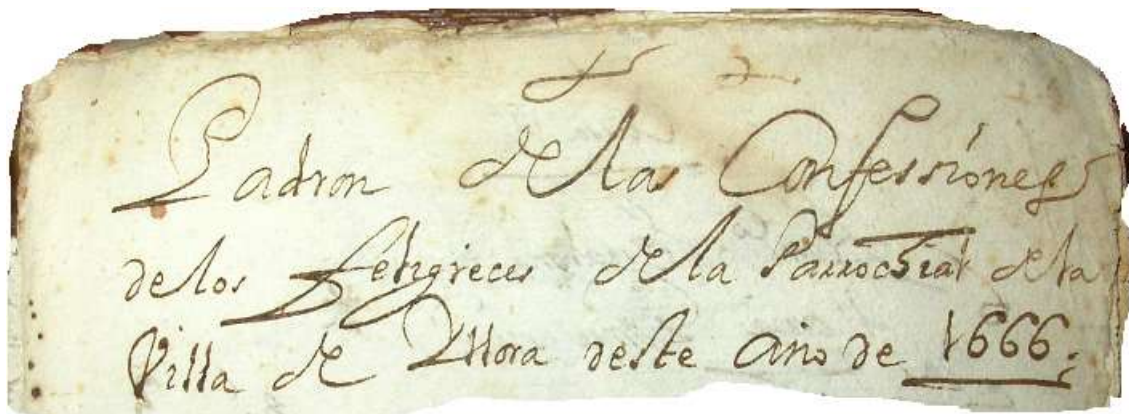 Padron de las Confessiones
de los feligreces de la Parrochial de la
Villa de Yllora deste Año de 1666.